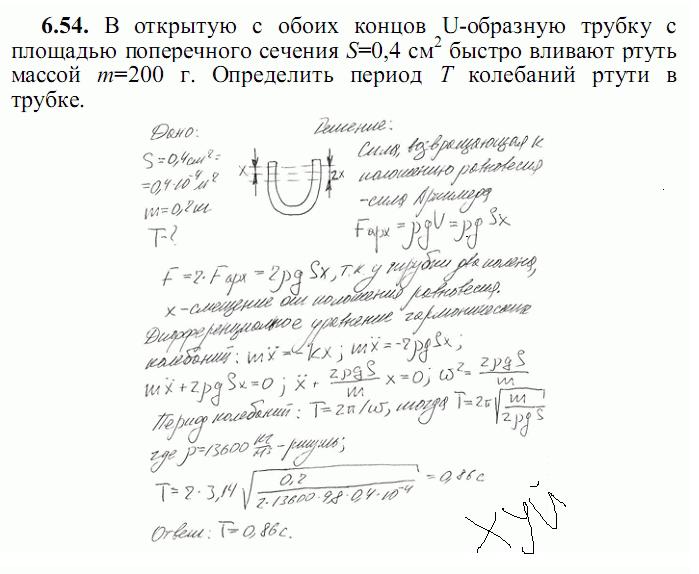 6.54. В открытую с обоих концов U-образную трубку с
площадью поперечного сечения S=0,4 см² быстро вливают ртуть
массой m=200 г. Определить период T колебаний ртути в
трубке.
Дано:
S=0,4см²=
=0,4·10⁻⁴м²
m=0,2кг
T-?
x
2x
Решение:
Сила, возвращающая к
положению равновесия
-сила Архимеда
Fарх = ρgV = ρgSx
F=2·Fарх=2ρgSx, т.к. у трубки два колена,
x-смещение от положения равновесия.
Дифференциальное уравнение гармонических
колебаний: mẍ=-kx; mẍ=-2ρgSx;
mẍ+2ρgSx=0; ẍ+ 2ρgS/m x=0; ω²= 2ρgS/m
Период колебаний: T=2π/ω, тогда T=2π√(m/2ρgS)
где ρ=13600 кг/м³-ртуть;
T=2·3,14 √(0,2/2·13600·9,8·0,4·10⁻⁴) =0,86с
Ответ: T=0,86с.
хуй